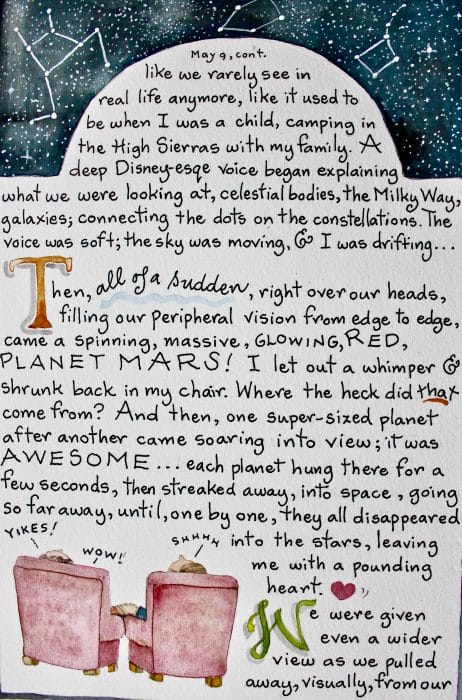 May 9, cont.
like we rarely see in
real life anymore, like it used to
be when I was a child, camping in
the High Sierras with my family. A
deep Disney-esqe voice began explaining
what we were looking at, celestial bodies, the Milky Way,
galaxies; connecting the dots on the constellations. The
voice was soft; the sky was moving, & I was drifting...
Then, all of a sudden, right over our heads,
filling our peripheral vision from edge to edge,
came a spinning, massive, GLOWING, RED,
PLANET MARS! I let out a whimper &
shrunk back in my chair. Where the heck did that
come from? And then, one super-sized planet
after another came soaring into view; it was
AWESOME... each planet hung there for a
few seconds, then streaked away, into space, going
so far away, until, one by one, they all disappeared
YIKES!
WOW!
SHHHH
into the stars, leaving
me with a pounding
heart.
We were given
even a wider
view as we pulled
away, visually, from our